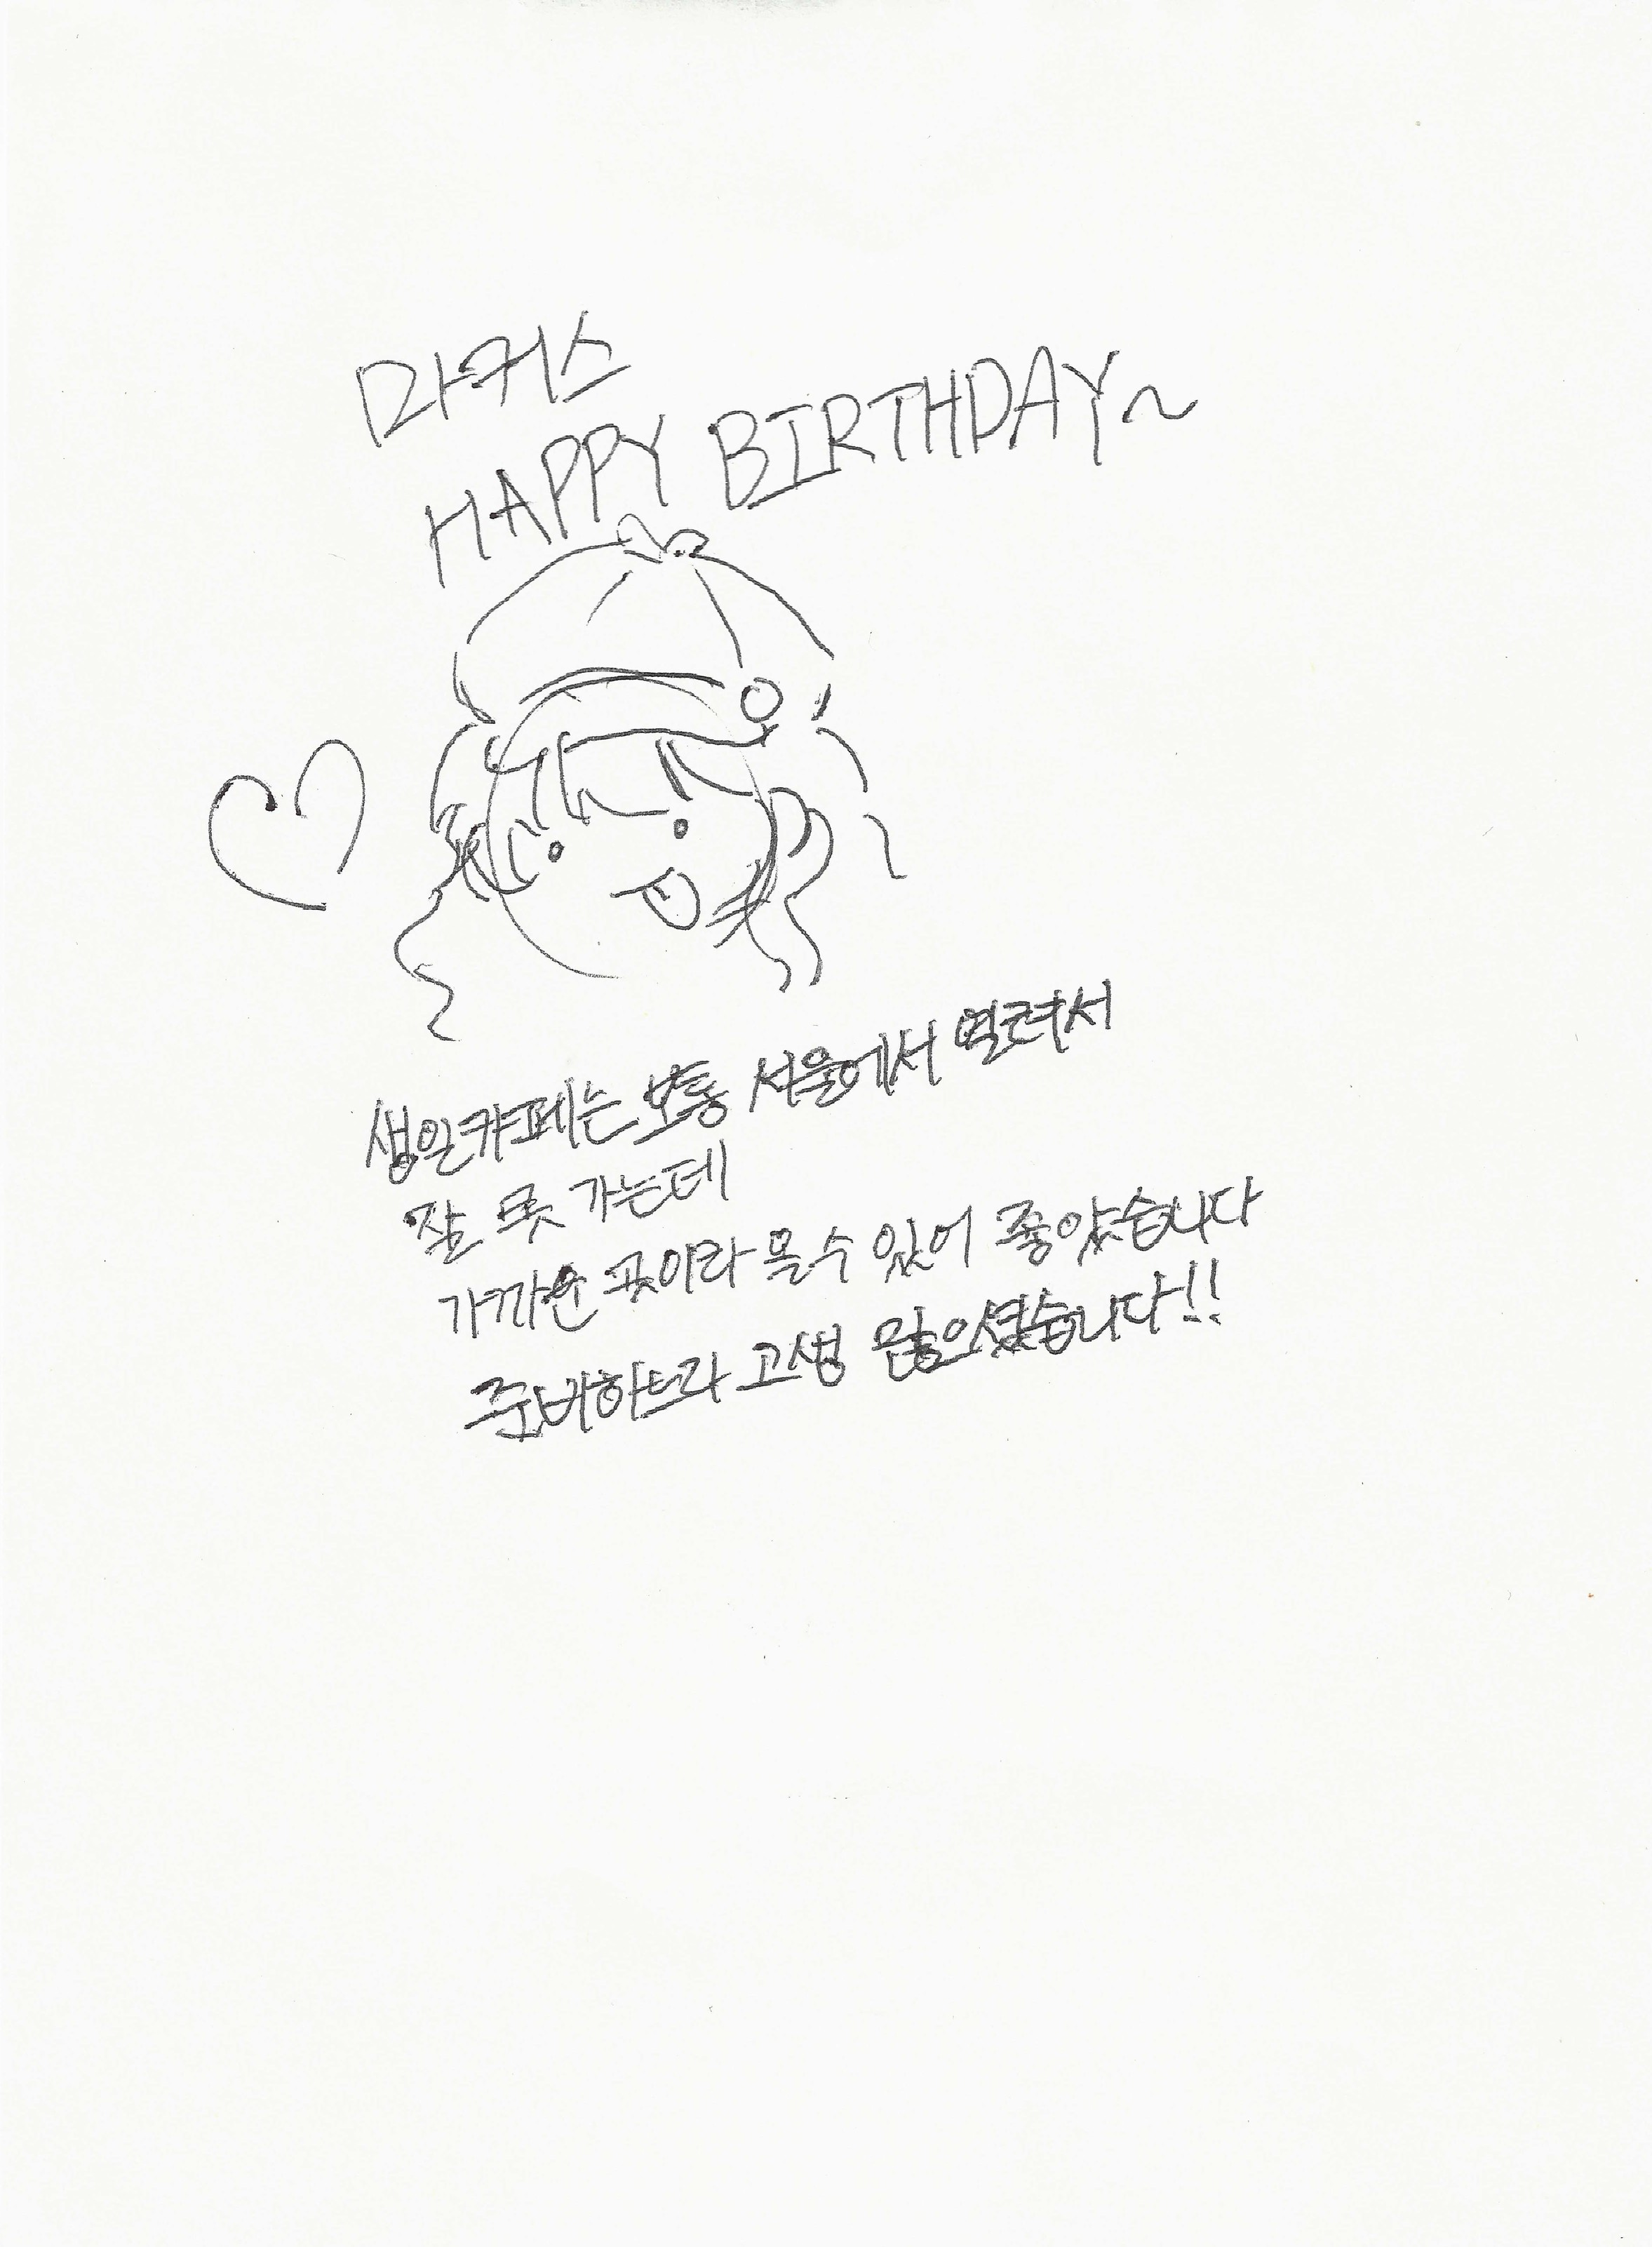 마커스
HAPPY BIRTHDAY~
생일카페는 보통 서울에서 열려서
잘 못 가는데
가까운 곳이라 올 수 있어 좋았습니다
준비하느라 고생 많으셨습니다!!